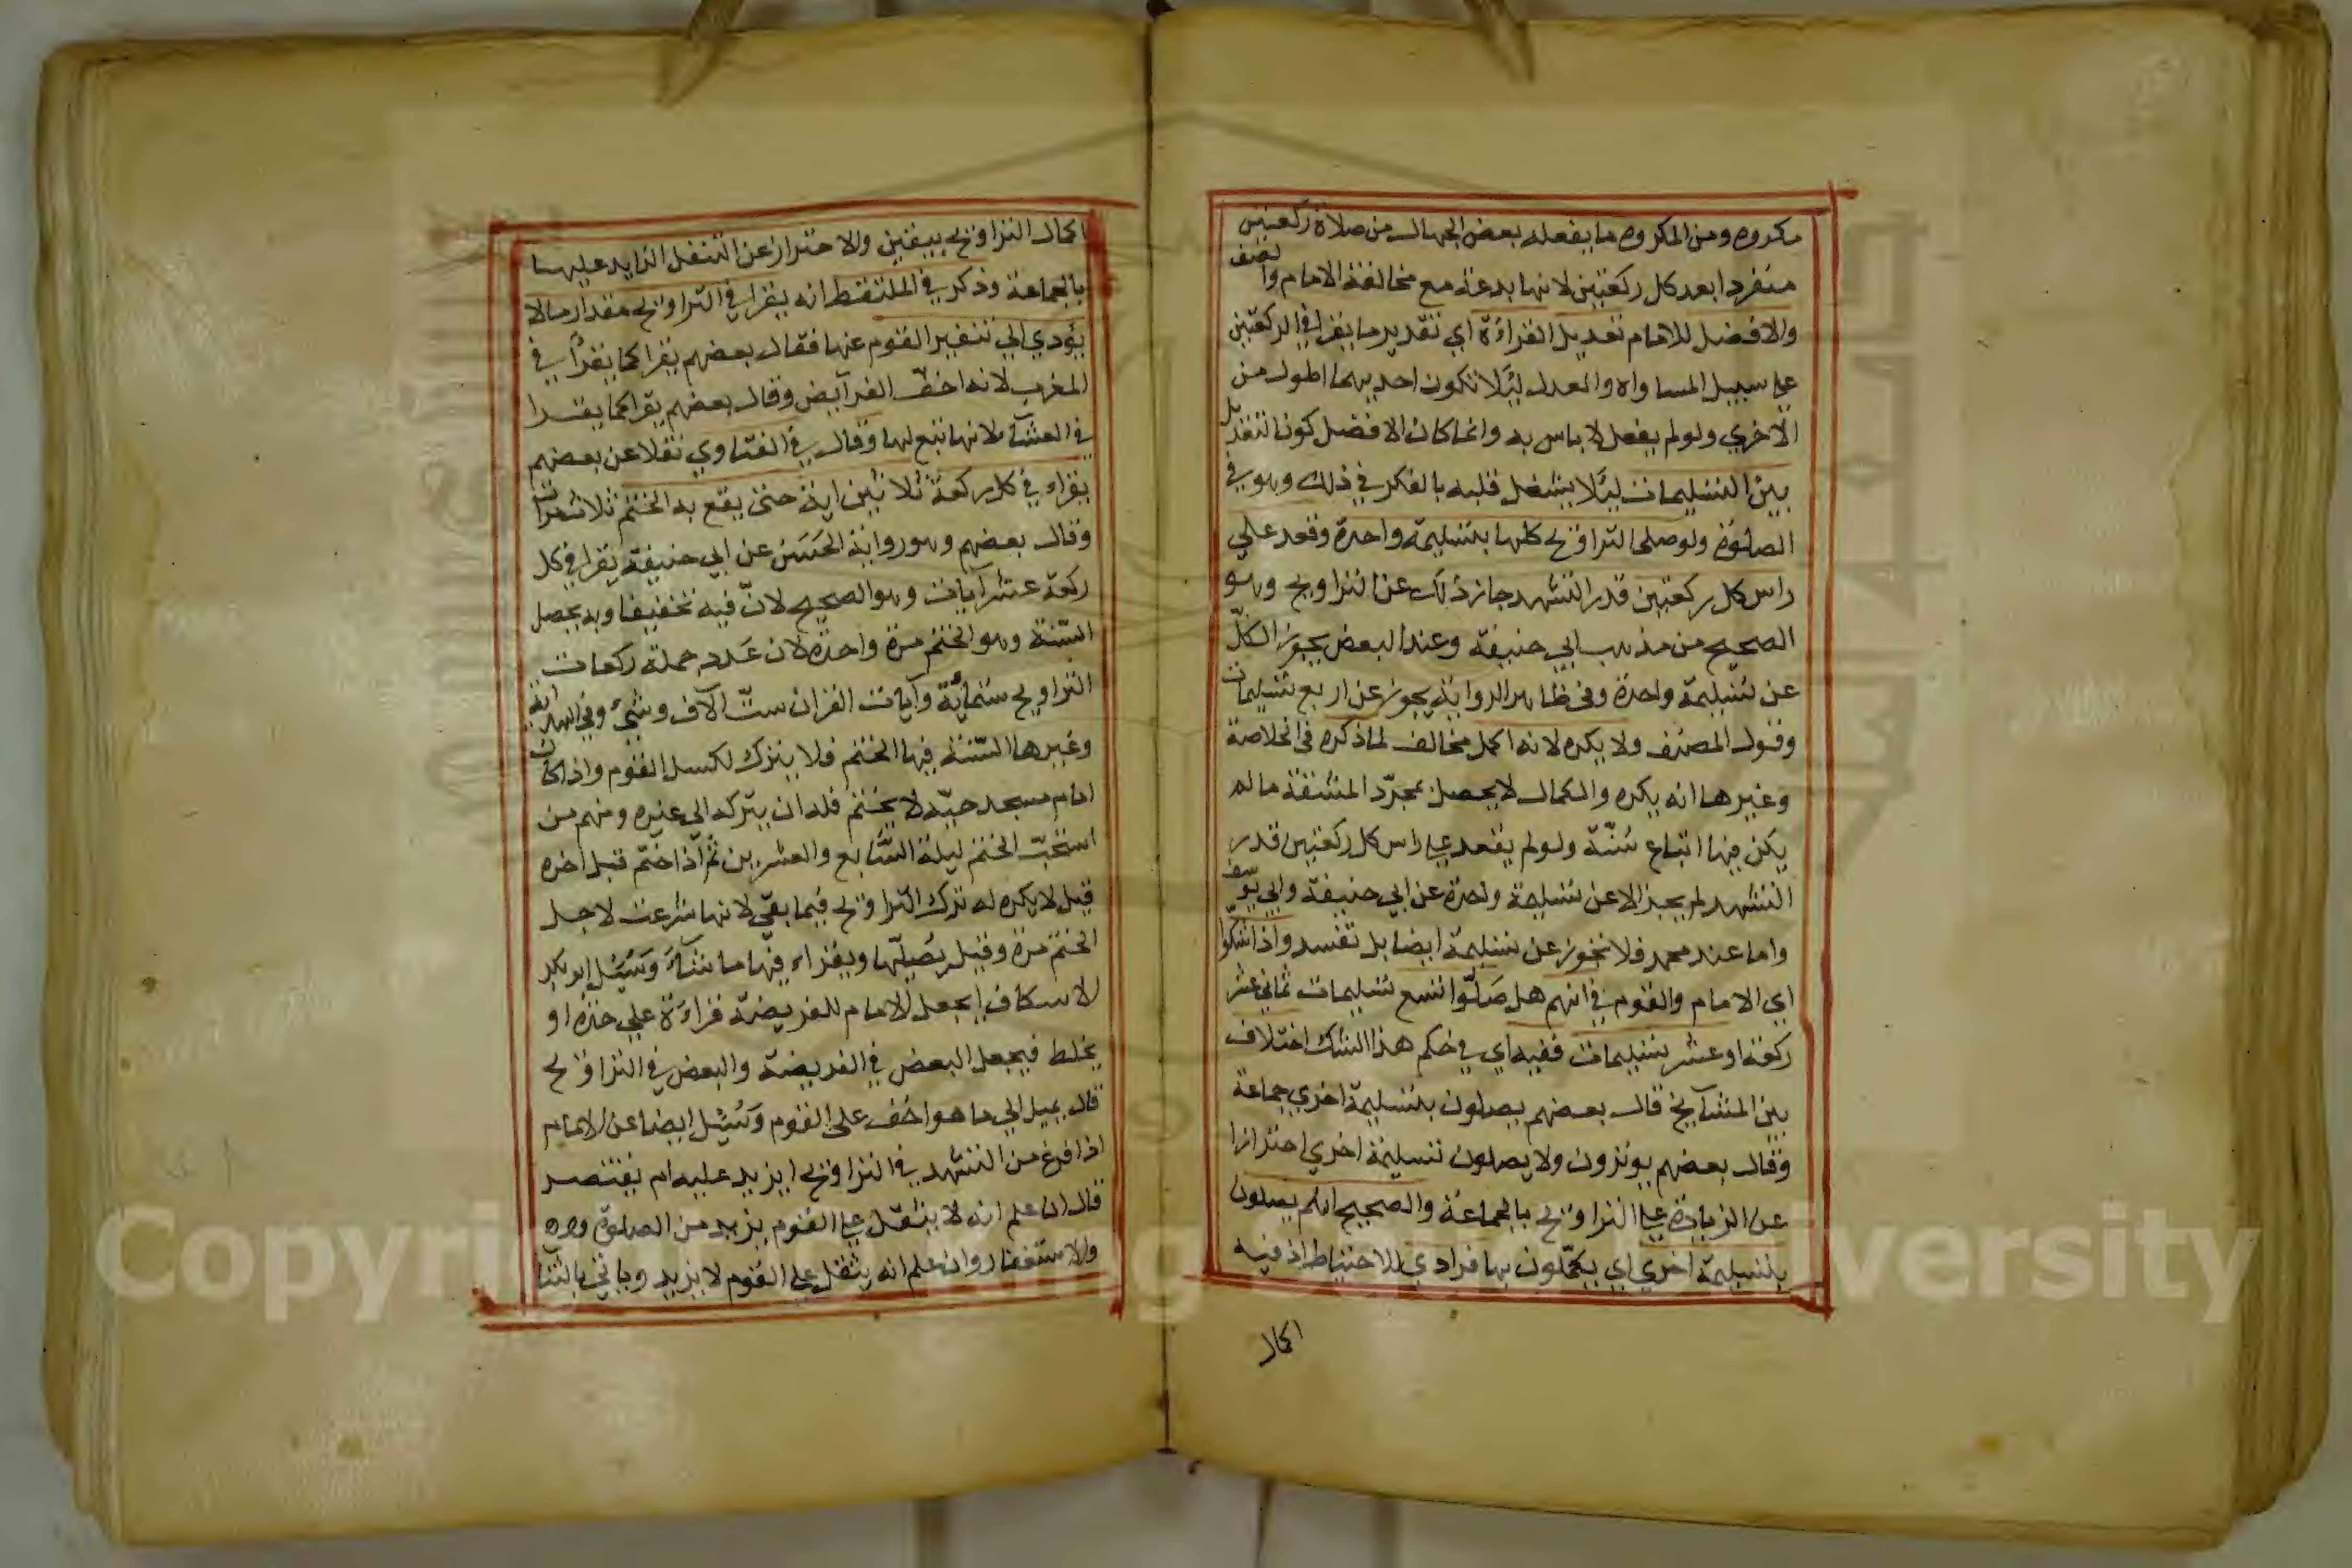 مكروه ومن المكروه ما يفعله بعض الجهال من صلاة ركعتين
منفردا بعد كل ركعتين لانها بدعة مع مخالفة الامام والصف
والافضل للامام تعديل القراءة اي تقدير ما يقرا في الركعتين
علي سبيل المساواه والعدل ليلا تكون احديهما اطول من
الاخري ولو لم يفعل لا باس به وانما كان الافضل كون التعديل
بين التسليمات ليلا يشغل قلبه بالفكر في ذلك وهو في
الصلوة ولو صلي التراويح كلها بتسليمة واحدة وقعد علي
راس كل ركعتين قدر التشهد جاز ذلك عن التراويح وهو
الصحيح من مذهب ابي حنيفة وعند البعض يجوز الكل
عن تسليمة واحدة وفي ظاهر الرواية يجوز عن اربع تسليمات
وقول المصنف ولا يكره لانه اكمل مخالف لما ذكره في الخلاصة
وغيرها انه يكره والكمال لا يحصل بمجرد المشقة ما لم
يكن فيها اتباع سنة ولو لم يقعد علي راس كل ركعتين قدر
التشهد لم يجز الا عن تسليمة وحدة عن ابي حنيفة وابي يوسف
واما عند محمد فلا تجوز عن تسليمة ايضا بل تفسد واذا شكوا
اي الامام والقوم في انهم هل صلوا تسع تسليمات ثماني عشر
ركعة او عشر تسليمات ففيه اي في حكم هذا الشك اختلاف
بين المشايخ قال بعضهم يصلون بتسليمة اخري جماعة
وقال بعضهم يوترون ولا يصلون تسليمة اخري احترازا
عن الزيادة علي التراويح بالجماعة والصحيح انهم يصلون
بتسليمة اخري اي يكملون بها فرادي للاحتياط اذ فيه
اكمال
اكمال التراويح بيقين والاحتراز عن التنفل الزايد عليها
بالجماعة وذكر في الملتقط انه يقرا في التراويح مقدار ما لا
يؤدي الي تنفير القوم عنها فقال بعضهم يقرا كما يقرأ في
المغرب لانه اخف الفرآيض وقال بعضهم يقرا كما يقرا
في العشآ لانها تبع لها وقال في الفتاوي نقلا عن بعضهم
يقراء في كل ركعة ثلاثين اية حتى يقع به الختم ثلاث مرات
وقال بعضهم وهو رواية الحسن عن ابي حنيفة يقرا في كل
ركعة عشر آيات وهو الصحيح لان فيه تخفيفا وبه يحصل
السنة وهو الختم مرة واحدة لان عدد جملة ركعات
التراويح ستمائة وآيات القران ست آلاف وشئ وفي الهداية
وغيرها السنة فيها الختم فلا يترك لكسل القوم واذا كان
امام مسجد حيه لا يختم فله ان يتركه الي غيره ومنهم من
استحب الختم ليلة السابع والعشرين ثم اذا ختم قبل اخره
قيل لا يكره له ترك التراويح فيما بقي لانها شرعت لاجل
الختم مرة وقيل يصليها ويقراء فيها ما شاء وسئل ابو بكر
الاسكاف ايجعل الامام للفريضة قراءة علي حدة او
يخلط فيجعل البعض في الفريضة والبعض في التراويح
قال يميل الي ما هو اخف علي القوم وسئل ايضا عن الامام
اذا فرغ من التشهد في التراويح ايزيد عليه ام يقتصر
قال ان علم انه لا يثقل علي القوم يزيد من الصلوة
والاستغفار وان علم انه يثقل علي القوم لا يزيد وياتي بالثنا
Copyright King Saud University